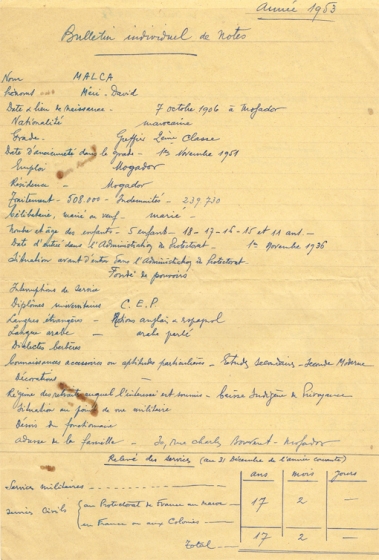 Année 1953
Bulletin individuel de Notes
Nom MALCA
Prénoms Méri-David
Date & lieu de naissance - 7 octobre 1906 à Mogador
Nationalité marocaine
Grade - Greffier 2ème Classe
Date d'ancienneté dans le Grade - 1er Novembre 1951
Emploi - Mogador
Résidence - Mogador
Traitement - 508.000 - Indemnités - 239.730
Célibataire, marié ou veuf - marié
Nombre & âge des enfants - 5 enfants - 18-17-16-15 et 11 ans -
Date d'entrée dans l'Administration du Protectorat - 1er Novembre 1936
Situation avant d'entrer dans l'Administration du Protectorat
Fondé de pouvoirs
Interruptions de service
Diplômes universitaires C.E.P
Langues étrangères - anglais & espagnol
Langue arabe - arabe parlé
Dialectes berbères
Connaissances accessoires ou aptitudes particulières - Etudes secondaires - Seconde Moderne
Décorations -
Régime des retraites auquel l'intéressé est soumis - Caisse de Prévoyance
Situation au point de vue militaire
Désirs du fonctionnaire
Adresse de la famille - rue Charles - Mogador
Relevé des services (au 31 Décembre de l'année courante)
ans mois jours
Services militaires
Services Civils au Protectorat de France au Maroc 17 2 -
en France ou aux Colonies
Total 17 2 -